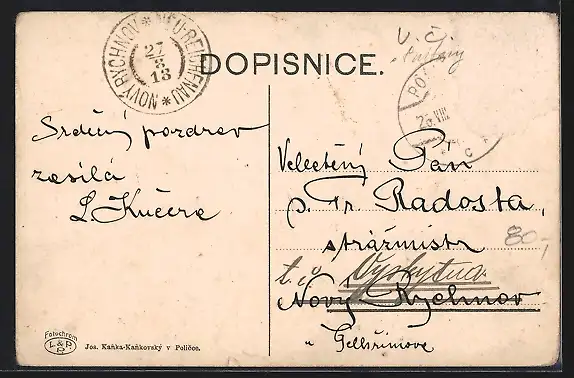 NOVÝ RYCHNOV * NEU-REICHENAU *
27
8
13
DOPISNICE.
V. Č.
26.VIII
Srdečný pozdrav
zasílá
L Kučera
Velectěný Pán
p. Fr. Radosta,
strážmistr
80,-
t. č. Vyskytná
Nový Rychnov
u Pelhřimova
Fotochrom
L & P
P.
Jos. Kaňka-Kaňkovský v Poličce.